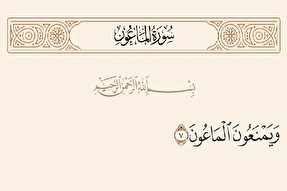 سُورَةُ المَاعُونِ
بِسْمِ اللَّهِ الرَّحْمَنِ الرَّحِيمِ
وَيَمْنَعُونَ الْمَاعُونَ ٧